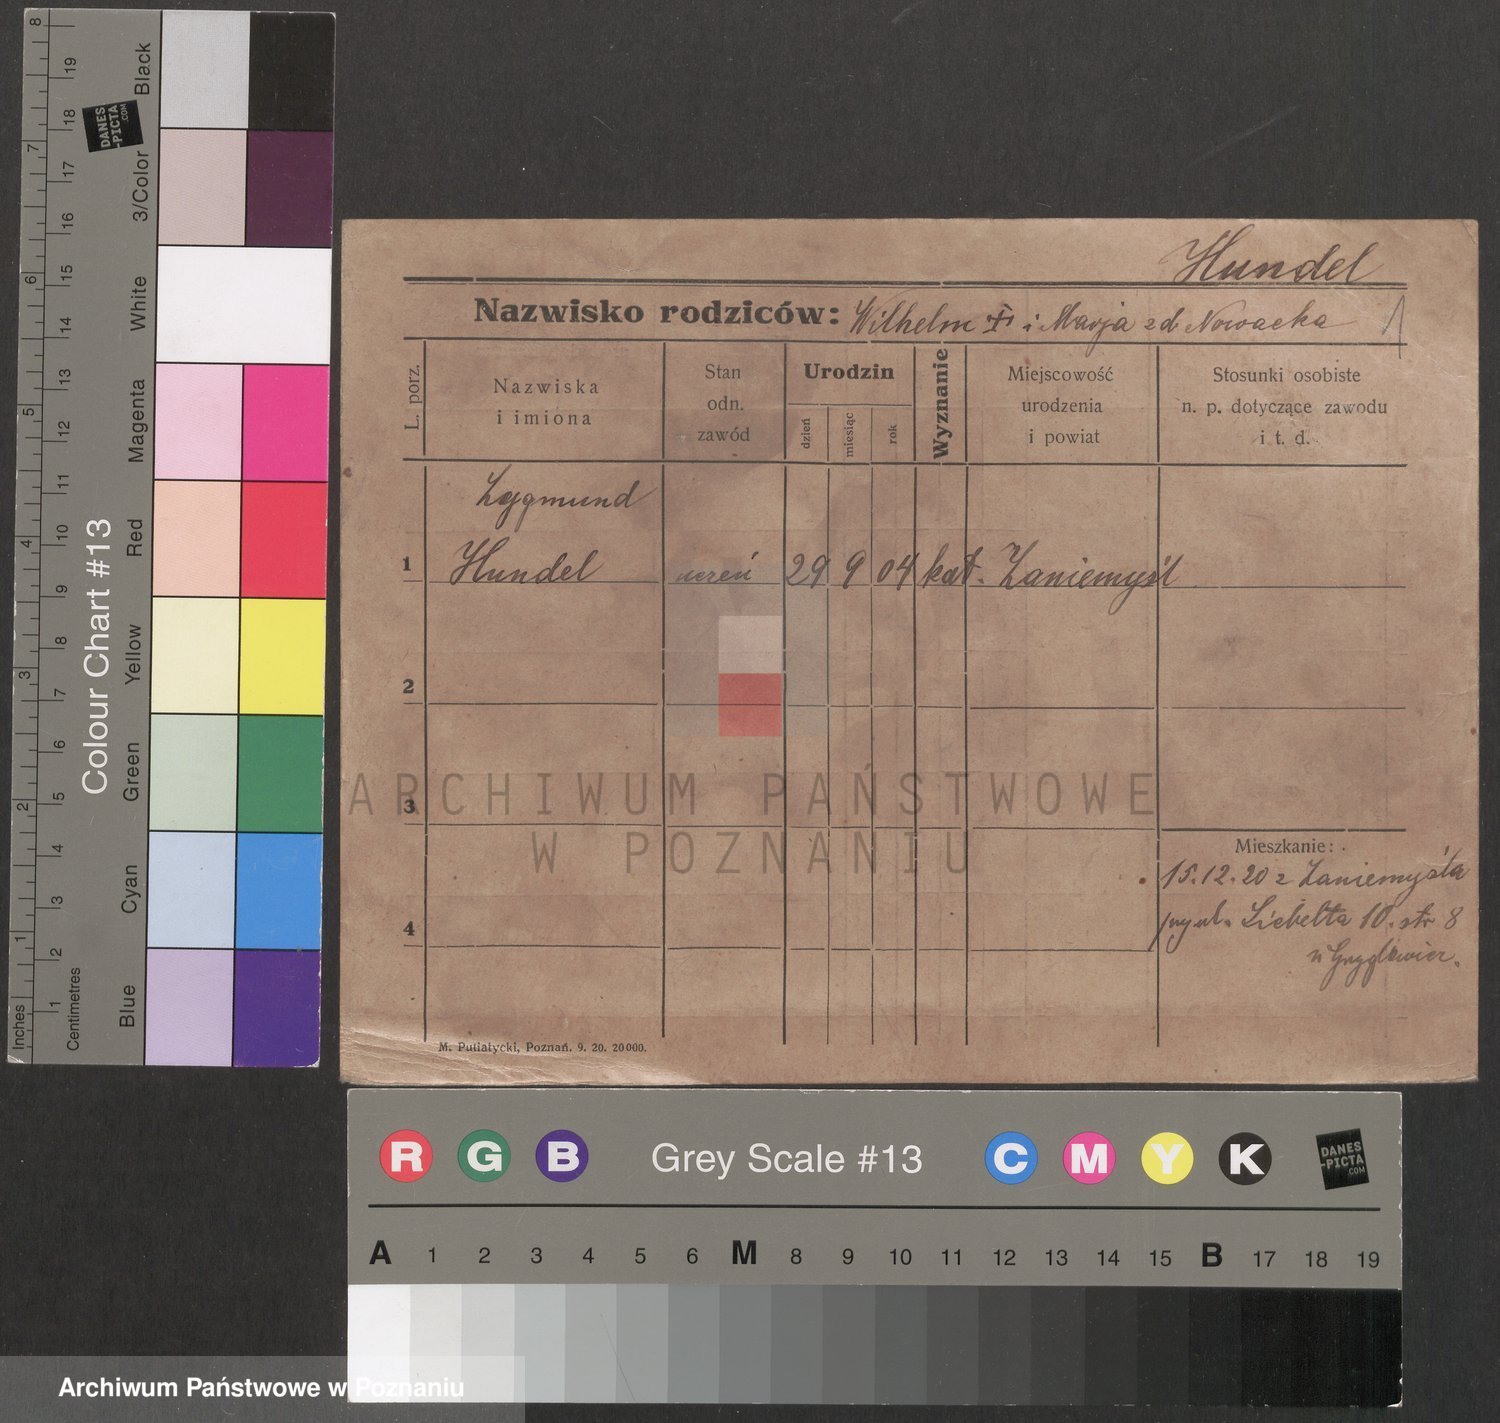 Hundel
Nazwisko rodziców: Wilhelm i Marja zd Nowacka
L. porz.
Nazwiska
i imiona
Stan
odn.
zawód
Urodzin
dzień
miesiąc
rok
Wyznanie
Miejscowość
urodzenia
i powiat
Stosunki osobiste
n. p. dotyczące zawodu
i t. d.
Zygmund
1 Hundel uczeń 29 9 04 kat. Zaniemyśl
2
3
4
Mieszkanie:
15.12.20 z Zaniemyśla
ul. Liebelta 10. str 8
M. Putiatycki, Poznań. 9. 20. 20000.
ARCHIWUM PAŃSTWOWE
W POZNANIU
Colour Chart #13
Inches
1 2 3 4 5 6 7 8
Centimetres
1 2 3 4 5 6 7 8 9 10 11 12 13 14 15 16 17 18 19
Blue
Cyan
Green
Yellow
Red
Magenta
White
3/Color
Black
DANES
-PICTA
.COM
R G B Grey Scale #13 C M Y K
DANES
-PICTA
.COM
A 1 2 3 4 5 6 M 8 9 10 11 12 13 14 15 B 17 18 19
Archiwum Państwowe w Poznaniu